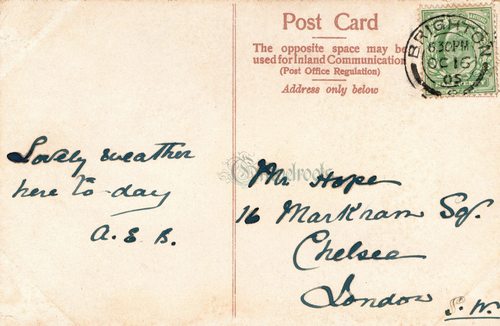 Post Card
The opposite space may be
used for Inland Communication
(Post Office Regulation)
Address only below
BRIGHTON
6.30PM
OC 16
05
Lovely weather
here to-day
A.E.B.
Mr Hope
16 Markham Sq.
Chelsea
London
S.W.